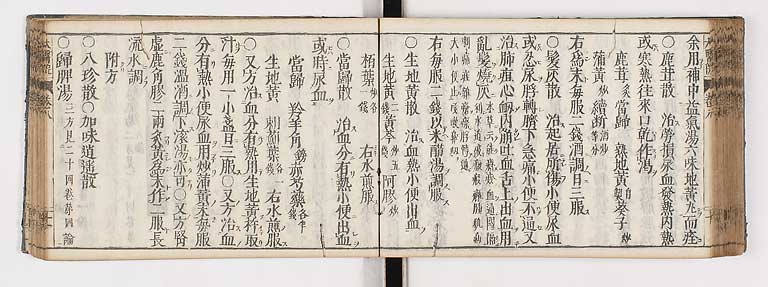 余用補中益氣湯六味地黃丸而痊
○鹿茸散 治勞損尿血發熱內熱
或寒熱往來口乾作渴
鹿茸炙 當歸 熟地黃 葵子炒
蒲黃炒 續斷
右爲末每服二錢酒調日三服
○髮灰散 治起居所傷小便尿血
或忍尿脬轉臍下急痛小便不通又
治肺疽心衄內崩吐血舌上出血用
亂髮燒灰
右每服二錢以米醋湯調服
○生地黃散 治血熱小便出血
生地黃二錢 黃芩炒五分 阿膠炒
栢葉炒各一錢 右水煎服
○當歸散 治血分有熱小便出血
或時尿血
當歸 羚羊角 赤芍藥各半錢
生地黃 刺薊葉各一錢 右水煎服
○又方治血分有熱用生地黃杵取
汁每用一小盞日三服○又方治血
分有熱小便尿血用炒蒲黃末每服
二錢溫酒調下滾湯亦可○又方腎
虛鹿角膠一兩炙黃爲末作二服長
流水調
附方
○八珍散○加味逍遙散
○歸脾湯三方見二十四卷第四論